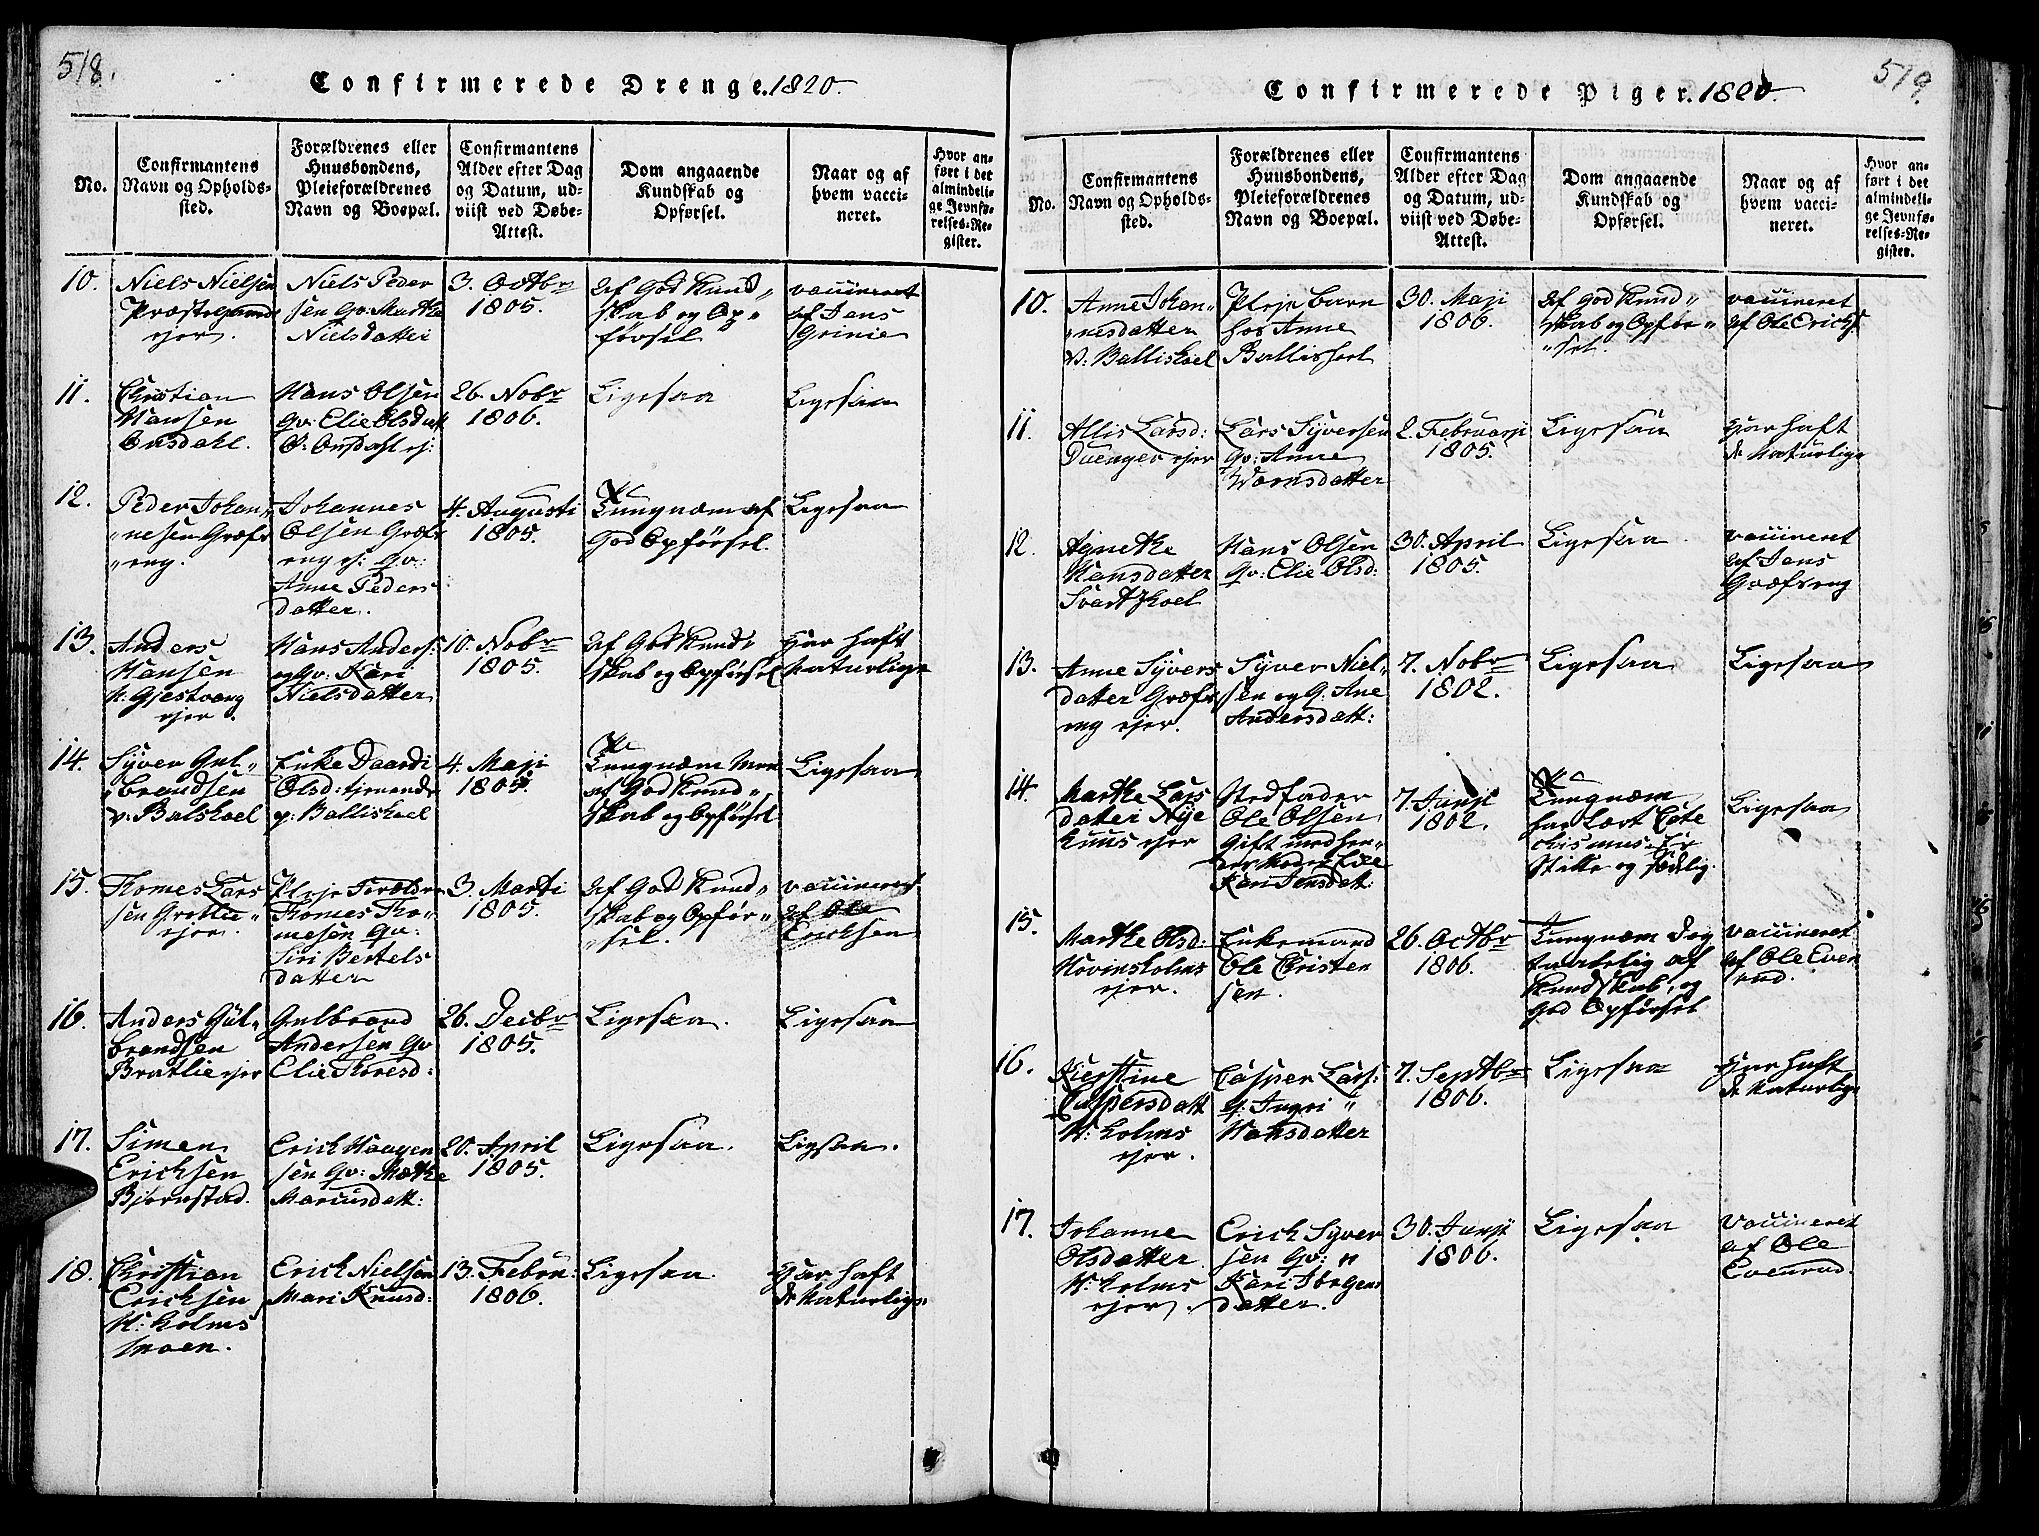 518.
Confirmerede Drenge. 1820.
No.
Confirmantens
Navn og Opholds-
sted.
Forældrenes eller
Huusbondens,
Pleieforældrenes
Navn og Boepæl.
Confirmantens
Alder efter Dag
og Datum, ud-
viist ved Døbe-
Attest.
Dom angaaende
Kundskab og
Opførsel.
Naar og af
hvem vacci-
neret.
Hvor an-
ført i det
almindeli-
ge Jevnfø-
relses-Re-
gister.
10.
Niels Nielsen
ejer.
Niels Peder
sen Gv: Marthe
Nielsdatter
3. Octbr
1805.
af God Kund"
skab og Op"
førsel
vaccineret
af Jens
Grinie
11.
Christian
Hansen
Onsdahl.
Hans Olsen
Gv: Elie Olsdat
O: Onsdahl ej:
26. Nobr
1806.
Ligesaa
Ligesaa
12.
Peder Johan"
"nesen Græfs
"eng.
Johannes
Olsen Græfs
eng ej: Gv:
Anne Peders
datter.
4. Augusti
1805.
Tungnæm af
God Opførsel.
Ligesaa
13.
Anders
Hansen
N: Gjestvang
ejer.
Hans Anders:
og Gv: Kari
Nielsdatter
10. Nobr
1805.
af God Kund"
skab og Opførsel
har haft
Naturlige
14.
Syver Gul"
brandsen
v: Balskoel
Enke Daardi
Olsd: tjenende
v: Balliskoel
4. Maji
1805.
Tungnæm Men
af God Kund"
skab og Opførsel
Ligesaa
15.
Thomes Lars
sen Grotlie"
ejer.
Pleje Forældre
Thomes Tho"
mesen Gv:
Siri Bertels
datter
3. Marti
1805.
af God Kund"
skab og Opfør"
"sel.
vaccineret
af Ole
Ericksen
16.
Anders Gul"
brandsen
Bratlie ejer
Gulbrand
Andersen Gv
Elie Thoresd:
26. Decbr
1805.
Ligesaa.
Ligesaa
17.
Simen
Ericksen
Bjørnstad.
Erick Haagen
sen Gv: Marthe
Marcusdatt:
20. April
1805.
Ligesaa.
Ligsaa.
18.
Christian
Ericksen
N: Kolms
moen.
Erick Nielsen
Mari Knusd:
13. Febru:
1806.
Ligesaa.
har haft
de Naturlige
519.
Confirmerede Piger. 1820.
No.
Confirmantens
Navn og Opholds-
sted.
Forældrenes eller
Huusbondens,
Pleieforældrenes
Navn og Boepæl.
Confirmantens
Alder efter Dag
og Datum, ud-
viist ved Døbe-
Attest.
Dom angaaende
Kundskab og
Opførsel.
Naar og af
hvem vacci-
neret.
Hvor an-
ført i det
almindeli-
ge Jevnfø-
relses-Re-
gister.
10.
Anne Johan"
nesdatter
v: Balliskoel
Pleje barn
hos Anne
Balliskoel
30. Maji
1806.
af God Kund"
skab og Opfør"
"sel.
vaccineret
af Ole Ericks
11.
Allis Larsd:
Duenger ejer
Lars Syversen
Gv: Anne
2. Februarji
1805.
Ligesaa
har haft
de Naturlige
12.
Agnethe
Hansdatter
Svartzkoel
Hans Olsen
Gv: Elie Olsd:
30. April
1805.
Ligesaa.
vaccineret
af Jens
Græfseng
13.
Anne Syvers
datter Græfs
eng ejer.
Syver Niel"
sen og G: Ane
Andersdatt:
7. Nobr
1802.
Ligesaa
Ligesaa
14.
Marthe Lars
datter Nye
huus ejer
Stedfader
Ole Olsen
Gift med hen"
des Moder
Kari Jensdatt:
7. Junji
1802.
Tungnæm
har Lært Cate
chismus. Er
Stille og sædelig.
Ligesaa
15.
Marthe Olsd:
Hovinsholms
ejer.
Enkemand
Ole Christen
sen.
26. Octbr
1806.
Tungnæm dog
taalelig af
Kundskab, og
god Opførsel
vaccineret
af Ole Even
rud.
16.
Kierstine
Caspersdatt
N: Kolms
ejer.
Casper Lars:
ej: Ingri "
Hansdatter
7. Septbr
1806.
Ligesaa
har haft
de Naturlige
17.
Johanne
Olsdatter
N: Kolms
ejer.
Erick Syver
sen Gv: "
Kari
datter.
30. Junji
1806.
Ligesaa
vaccineret
af Ole
Evenrud.